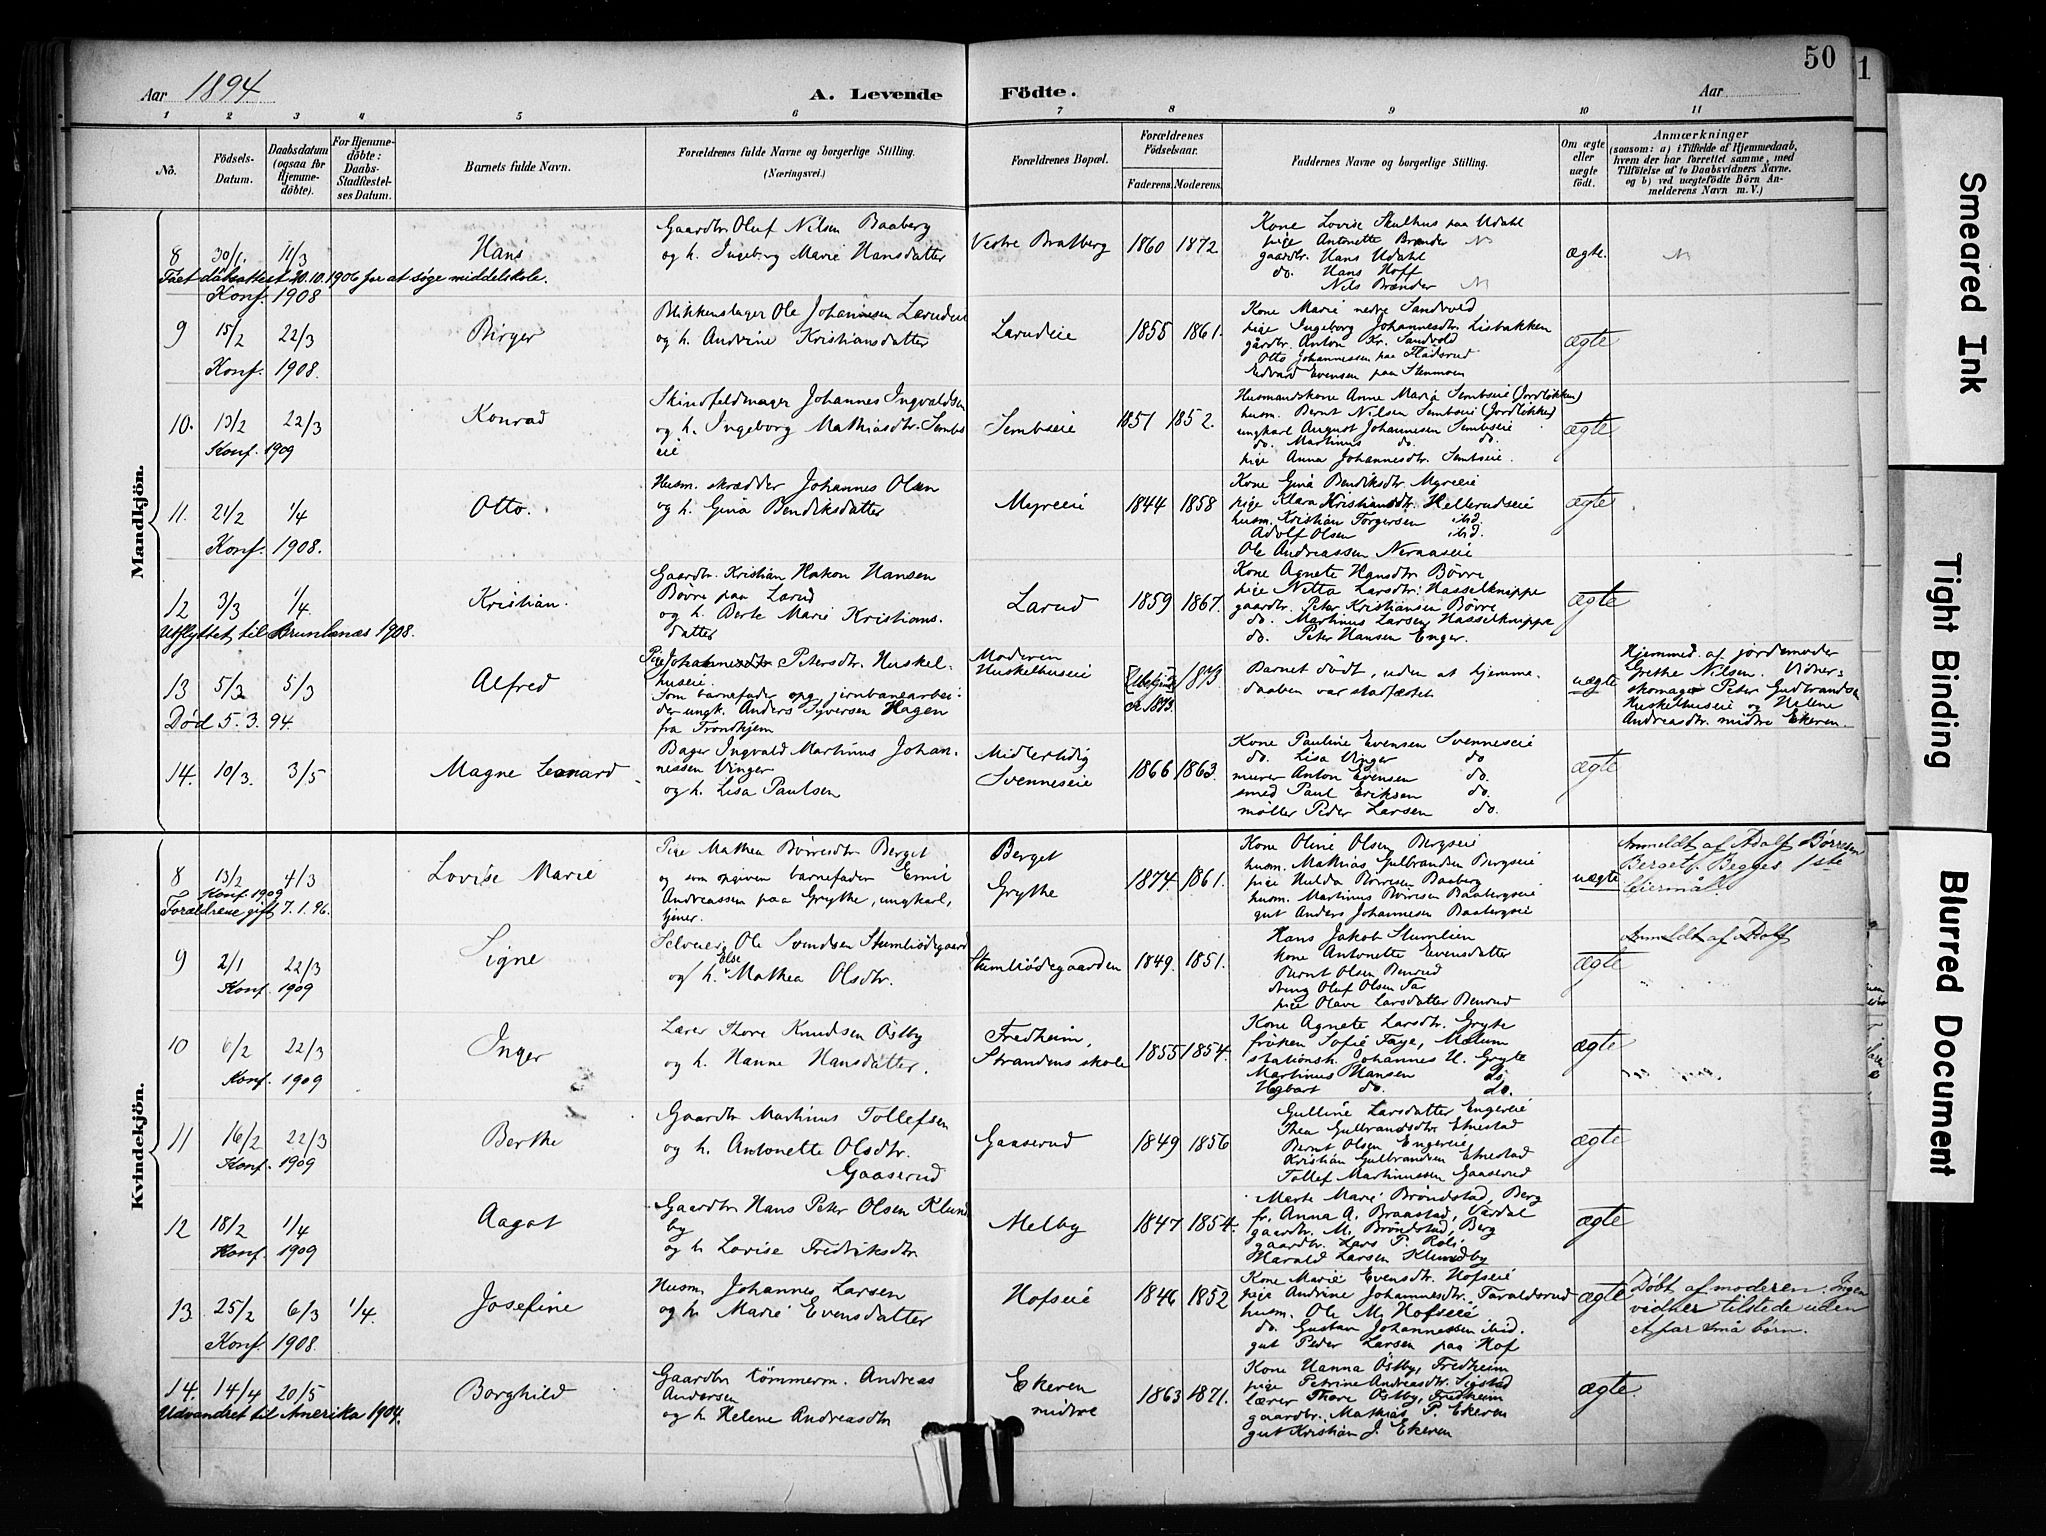 50
1
Aar 1894
A. Levende Födte.
Aar
1 2 3 4 5 6 7 8 9 10 11
No.
Födsels-Datum.
Daabsdatum (ogsaa for Hjemme-döbte).
For Hjemme-döbte: Daabs-Stadfæstel-ses Datum.
Barnets fulde Navn.
Forældrenes fulde Navne og borgerlige Stilling.
(Næringsvei.)
Forældrenes Bopæl.
Forældrenes Födselsaar.
Faderens. Moderens.
Faddernes Navne og borgerlige Stilling.
Om ægte eller uægte födt.
Anmærkninger
(saasom: a) i Tilfælde af Hjemmedaab,
hvem der har forrettet samme, med
Tilföielse af to Daabsvidners Navne.
og b) ved uægtefödte Börn An-
melderens Navn m. V.)
Mandkjön.
8 30/1. 11/3 Hans
Gaardbr. Oluf Nilsen Baaberg
og h. Ingeborg Marie Hansdatter
Vestre Bratberg 1860 1872
Kone Lovise Skulhus paa Udahl
pige Antonette Brænder
gaardbr. Hans Udahl
do. Hans Hoff
Nils Brænder
ægte.
Faet dåbsattest 20.10.1906 for at søge middelskole.
Konf. 1908
9 15/2 22/3 Birger
Blikkenslager Ole Johannesen Larudeie
og h. Andrine Kristiansdatter
Larudeie 1855 1861.
Kone Marie nedre Sandvold
pige Ingeborg Johannesdtr. Lisbakken
gårdbr. Anton Kr. Sandvold
Otto Johannessen paa Fladsrud
Edvard Evensen paa Stenmoen
ægte
Konf. 1908.
10. 13/2 22/3 Konrad
Skindfeldmager Johannes Ingvaldsen
og h. Ingeborg Mathiasdtr. Sembs
eie
Sembseie 1851 1852.
Husmandskone Anne Maria Sembseie (Jordløkken)
husm. Bernt Nilsen Sembseie (Jordløkken)
ungkarl August Johannesen Sembseie
do. Martinus do. do.
pige Anna Johannesdtr. Sembseie.
ægte
Konf. 1909
11. 21/2 1/4 Otto.
Husm. skrædder Johannes Olsen
og h. Gina Bendiksdatter
Myreeie 1844 1858
Kone Gina Bendiksdtr. Myreeie
pige Klara Kristiansdtr. Hellerudseie
husm. Kristian Torgersen ibid.
Adolf Olsen ibid.
Ole Andreassen Neraaseie
ægte
Konf. 1908.
12 3/3 1/4 Kristian.
Gaardbr. Kristian Hakon Hansen
Bövre paa Larud
og h. Berte Marie Kristians.
datter
Larud 1859 1867.
Kone Agnete Hansdtr Bövre
pige Netta Larsdtr. Hasselknippe
gaardbr. Peter Kristiansen Bövre
do. Martinus Larsen Hasselknippe
do. Peter Hansen Enger.
ægte
Utflyttet til Brunlanæs 1908.
13 5/3 5/3 Alfred
Pige Johannesdtr Petersdtr. Huskel-
huseie.
Som barnefader opg. jernbanearbei-
der ungk. Anders Syversen Hagen
fra Trondhjem
Moderen
Huskelhuseie
1873
Barnet dödt, uden at hjemme-
daaben var stadfæstet
uægte
Hjemmed. af jordemoder
Grethe Nilsen. Vidner:
skomager Peter Gudbrandsen
Huskelhuseie og Helene
Andreasdtr. midtre Ekeren
Død 5.3.94.
14. 10/3. 3/5 Magne Leonard
Bager Ingvald Martinus Johan-
nessen Vinger
og h. Lisa Paulsen
Midlertidig
Svenneseie 1866 1863.
Kone Pauline Evensen Svenneseie
do. Lisa Vinger do
murer Anton Evensen do.
smed Paul Eriksen do.
møller Peder Larsen do.
ægte
Kvindekjön.
8 13/2 4/3 Lovise Marie
Pige Mathea Börresdtr. Berget
og som opgiven barnefader Emil
Andreassen paa Grythe, ungkarl,
tjener.
Berget
Grythe 1874 1861.
Kone Oline Olsen Bergseie
husm. Mathias Gulbrandsen Bergseie
pige Hulda Börresen Baaberg
husm. Martinus Börresen Baabergseie
gut Anders Johannesen Baabergseie
uægte
Anmeldt af Adolf Børresen
Berget. Begges 1ste
leiermål.
Konf. 1909
Forældrene gift 7.1.96.
9 2/1 22/3 Signe
Selveier Ole Svendsen Stumliödegaard
og h. Else Mathea Olsdtr.
Stumliödegaarden 1849. 1851.
Hans Jakob Stumlien
kone Antonette Evensdatter
Bernt Olsen Benrud
dreng Oluf Olsen Tar
pige Olave Larsdatter Benrud
ægte
Anmeldt af Adolf
Konf. 1909
10 6/2 22/3 Inger
Lærer Thore Knudsen Östby
og h. Hanne Hansdatter.
Fredheim,
Strandens skole 1855 1854.
Kone Agnete Larsdtr. Gryte
fröken Sofie Faye, Mælum
stationsh. Johannes H. Gryte
Martinus Hansen do
Hagbart do. do.
ægte
Konf. 1909
11 16/2 22/3 Berthe
Gaardbr Martinus Tollefsen
og h. Antonette Olsdtr.
Gaaserud
Gaaserud 1849 1856
Gulline Larsdatter Engereie
Thea Gulbrandsdtr. Ehnestad
Bernt Olsen Engereie
Kristian Gulbrandsen Ehnestad
Tollef Martinussen Gaaserud
ægte
Konf. 1909
12 18/2 1/4 Aagot
Gaardbr Hans Peter Olsen Klund
by
og h Lovise Fredriksdtr.
Melby 1847 1854.
Marte Marie Bröndstad, Berg
fr. Anna A. Braastad, Vardal
gaardbr. M. Bröndstad, Berg
gaardbr. Lars P. Roli
Harald Larsen Klundby
ægte
Konf. 1909
13 25/2 6/3 1/4. Josefine
Husm. Johannes Larsen
og h. Marie Evensdatter
Hofseie 1846 1852
Kone Marie Evensdtr. Hofseie
pige Andrine Johannesdtr. Taraldsrud
husm. Ole M. Hofseie
do. Gustav Johannessen ibid.
gut Peder Larsen paa Hof
ægte
Döbt af moderen. Ingen
vidner tilstede uden
et par små börn.
Konf. 1908.
14. 14/4 20/5 Borghild
Gaardbr tömmerm. Andreas
Andersen
og h. Helene Andreasdtr
Ekeren
midtre 1863 1871.
Kone Hanna Östby, Fredheim
pige Petrine Andreasdtr. Sigstad
lærer Thore Östby, Fredheim
gaardbr. Mathias P. Ekeren
gut Kristian J. Ekeren
ægte.
Udvandret til Amerika 1904.
Smeared Ink
Tight Binding
Blurred Document